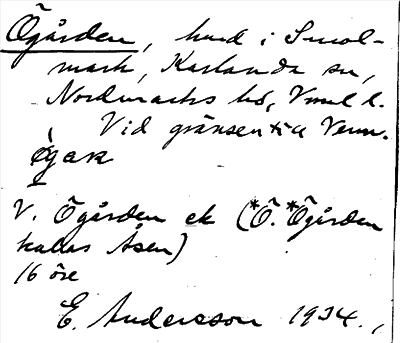 Ögården, hmd i Smol-
mark, Karlanda sn,
Nordmarks hd, Vrml l.
Vid gränsen till Venn.
øgaʀ
V. Ögården ek (*Ö. *Ögården
kallas Åsen)
16 öre
E. Andersson 1934.,